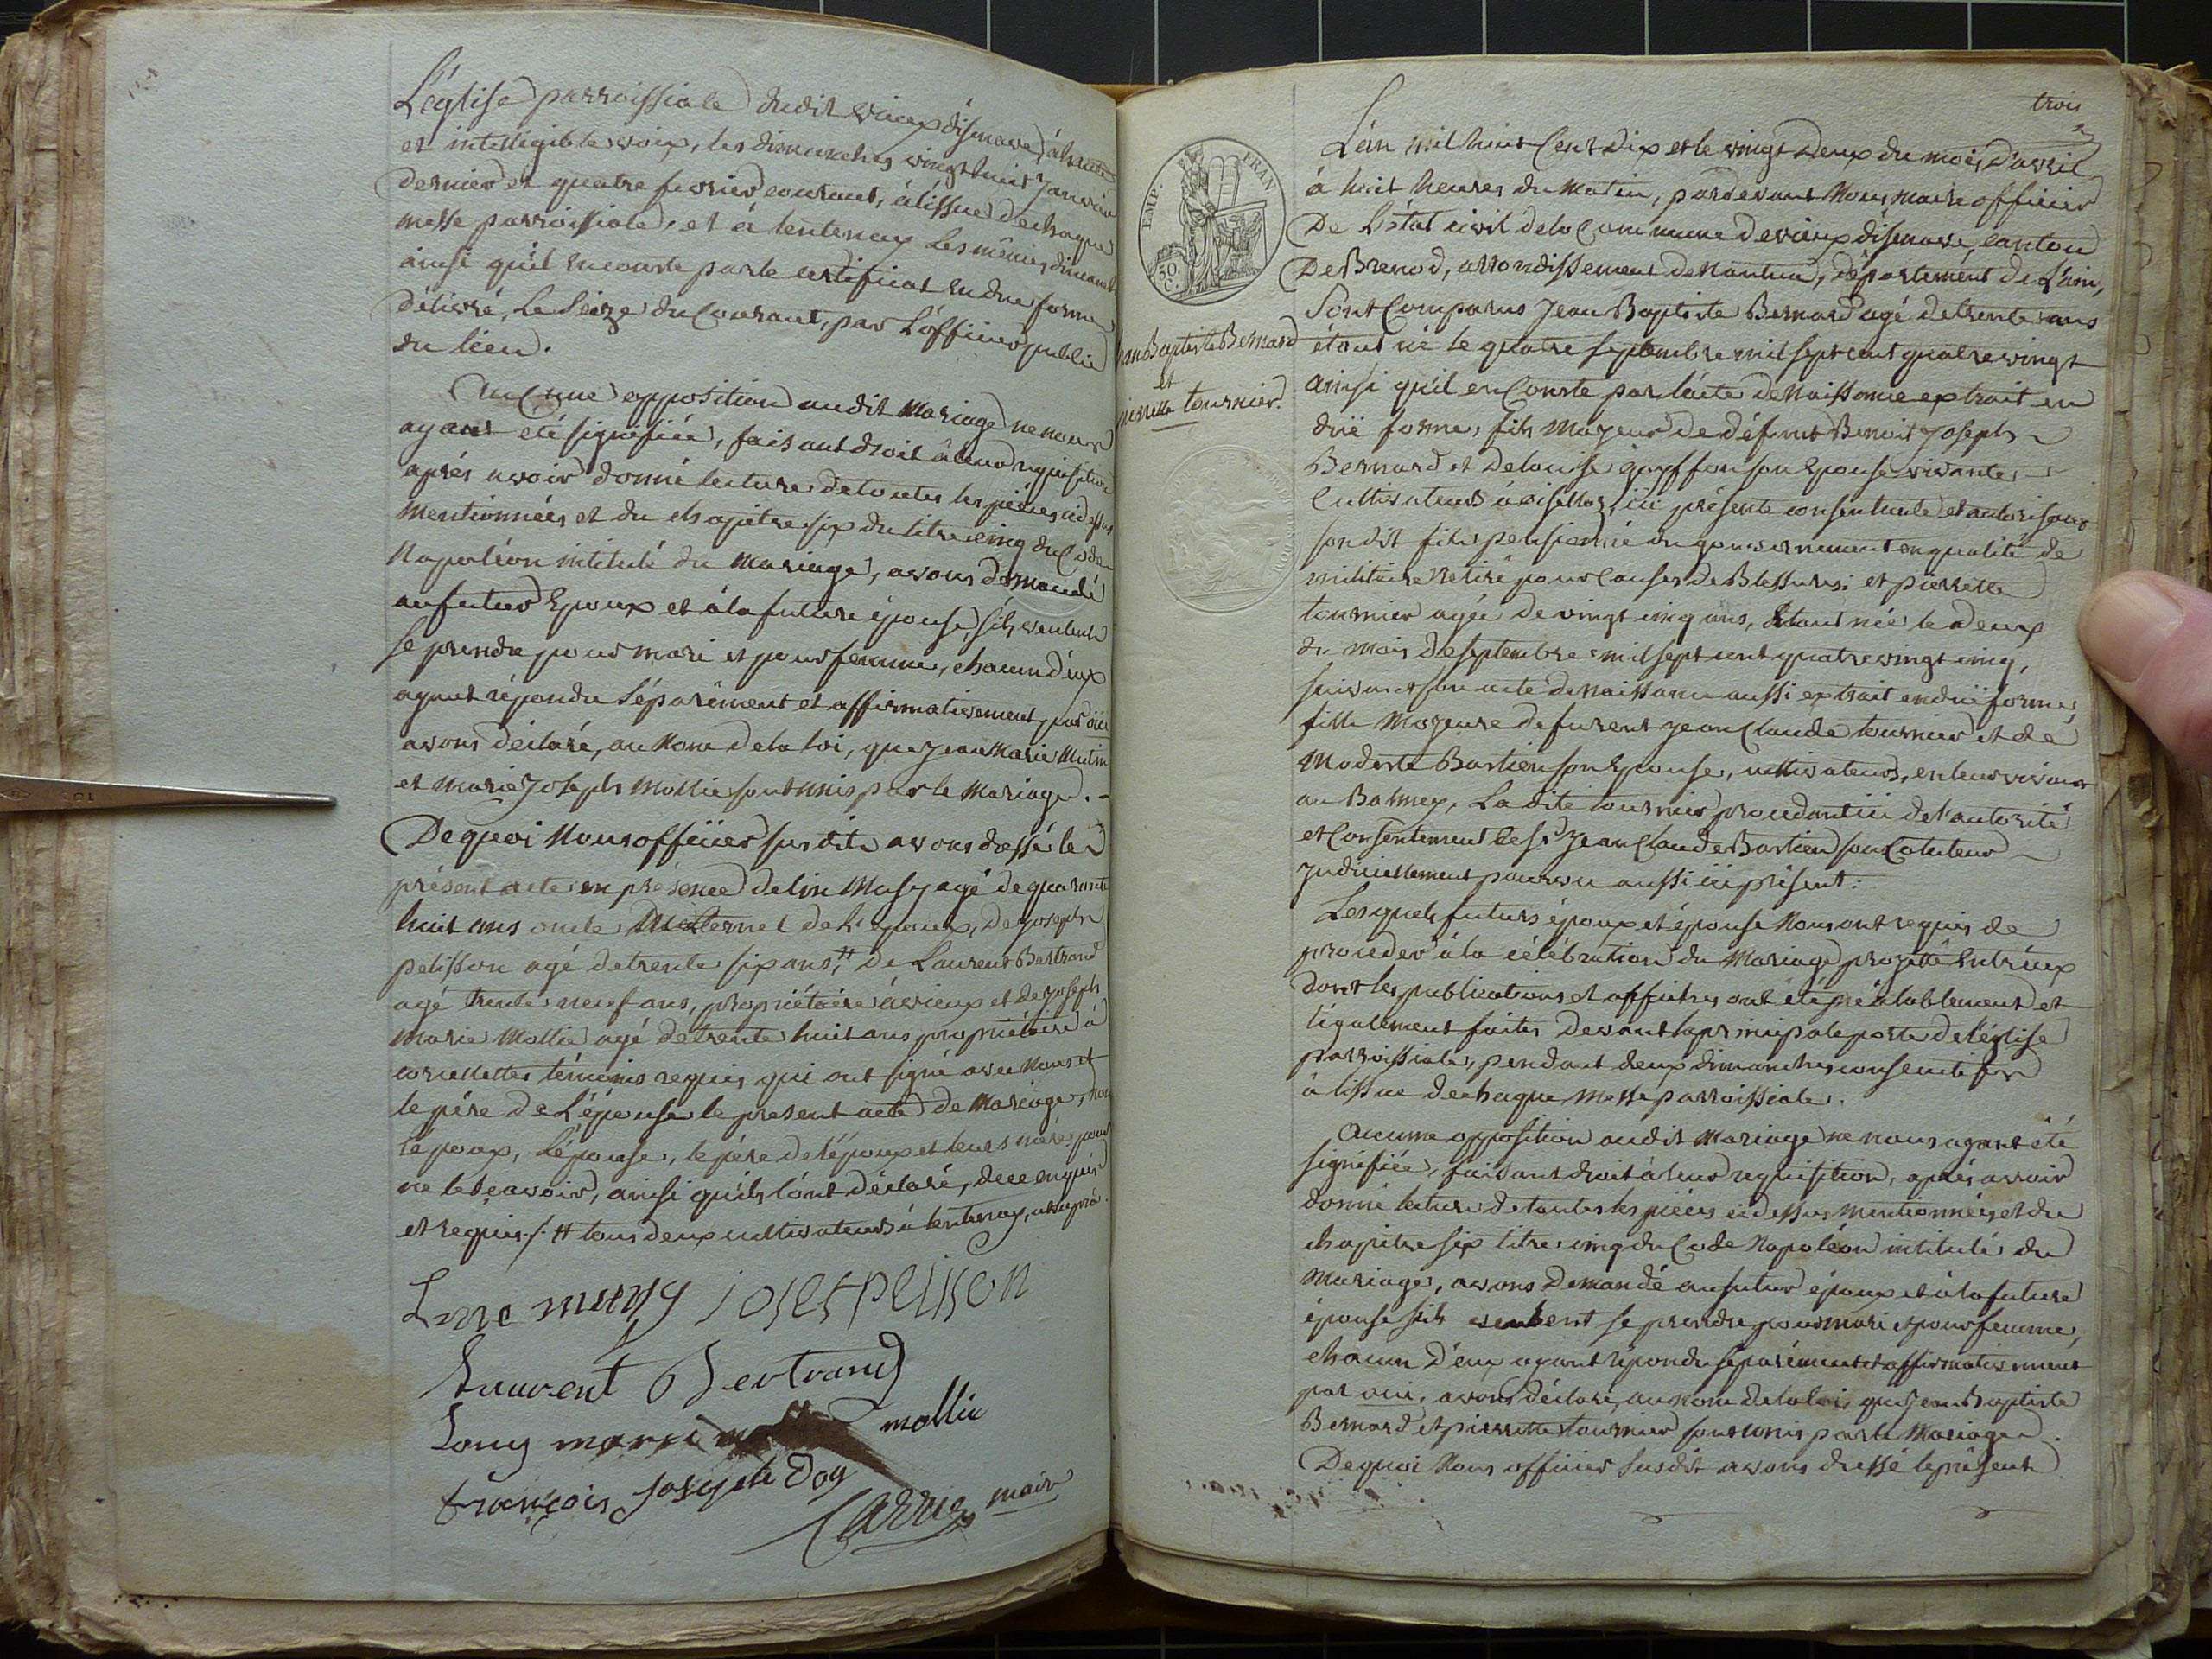 L'église parroissiale dudit vieux disenave, à haute
et intelligible voix, les dimanches vingt huit Janvier
dernier et quatre fevrier courant, à lissue de chaque
messe parroissiale, et à lentenay les mêmes dimanch
ainsi qu'il en conste par le certificat en due forme
délivré, le Seize du Courant, par L'officier public
du lieu.
Aucune opposition audit Mariage ne nous
ayant eté signifiée, faisant droit à leur requisition
aprés avoir donné lecture de toutes les piéces ci dessus
mentionnées et du chapitre six du titre cinq du Code
Napoléon intitulé du Mariage, avons demandé
au futur Epoux et à la future épouse, s'ils veulent
se prendre pour mari et pour femme, chacun d'eux
ayant répondu séparément et affirmativement par oui
avons déclaré, au Nom de la loi, que Jean Marie Mutin
et Marie Joseph Mollie sont unis par le Mariage. -
De quoi Nous officier susdit avons dressé le
présent acte en présence de lin Musy agé de quarante
huit ans oncle Maternel de l'epoux, de Joseph
pelisson agé de trente six ans, # de Laurent Bertrand
agé trente neuf ans, propriétaire à vieux et de Joseph
Marie Mollie agé de trente huit ans propriétaire à
corcelettes témoins requis qui ont signé avec Nous et
le pére de L'épouse le present acte de Mariage, non
l'époux, L'épouse, le pére de l'époux et leurs méres pour
ne le sçavoir, ainsi qu'ils l'ont déclaré, de ce enquis
et requis ./. # tous deux cultivateurs à lentenay,
Line musy josest pelisson
Laurent Bertrand
Louis marie mollie
françois Joseph Doy
Carrier maire
trois
L'an mil huit Cent Dix et le vingt Deux du mois d'avril
à huit heures du Matin, pardevant Nous maire officier
De L'état civil de la Commune de vieux disenave, canton
De Brenod, arrondissement de Nantua, département de L'ain,
Sont Comparus Jean Baptiste Bernard agé de trente ans
étant né le quatre septembre mil sept cent quatre vingt
ainsi qu'il en Conste par l'acte de Naissance extrait en
düe forme, fils Majeur de défunt Benoit Joseph
Bernard et de louise guyffon son Epouse vivante,
Cultivateurs à oisellaz, ici présente consentante et autorisant
son dit fils pensionné du gouvernement en qualité de
militaire retiré pour Causes de Blessures; et pierrette
tournier agée de vingt cinq ans, étant née le deux
du mois de septembre mil sept cent quatre vingt cinq,
suivant son acte de Naissance aussi extrait en düe forme,
fille Majeure de furent Jean Claude tournier et de
Modeste Bastien son Epouse, cultivateurs, en leur vivant
au Balmey, La dite tournier procedant ici de l'autorité
et Consentement de Sr Jean Claude Bastien son Cotuteur
Judiciellement pourvu aussi ici présent.
Lesquels futurs époux et épouse Nous ont requis de
proceder à la célébration du Mariage projetté entr'eux
dont les publications et affiches ont été préalablement et
légalement faites devant la principale porte de l'église
parroissiale, pendant deux dimanches consecutifs
à lissue de chaque Messe parroissiale.
Aucune opposition audit Mariage ne nous ayant été
signifiée, faisant droit à leur requisition, aprés avoir
donné lecture de toutes les piéces ci dessus mentionnées et du
chapitre six titre cinq du Code Napoléon intitulé du
Mariage, avons Demandé au futur époux et à la future
épouse s'ils veulent se prendre pour mari et pour femme,
chacun D'eux ayant répondu séparément et affirmativement
par oui, avons déclaré, au nom de la loi, que Jean Baptiste
Bernard et pierrette tournier sont unis par le Mariage.
De quoi Nous officier susdit avons dressé le présent
EMP. FRAN
50. C.
Jean Baptiste Bernard
et
pierrette tournier.